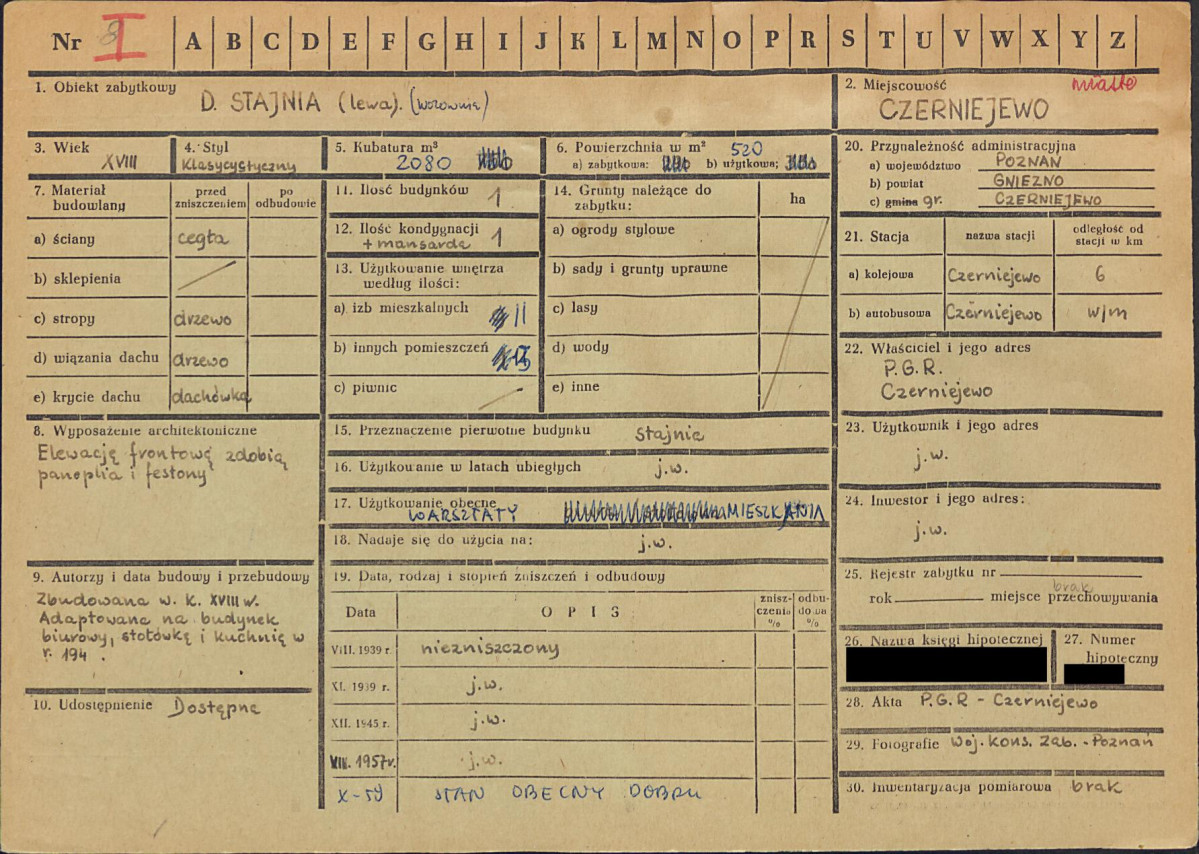 Nr 8 I A B C D E F G H I J K L M N O P R S T U V W X Y Z
1. Obiekt zabytkowy
D. STAJNIA (lewa). (wozownia)
2. Miejscowość miasto
CZERNIEJEWO
3. Wiek
XVIII
4. Styl
Klasycystyczny
5. Kubatura m³
2080
6. Powierzchnia w m² 520
a) zabytkowa: b) użytkowa:
20. Przynależność administracyjna
a) województwo POZNAŃ
b) powiat GNIEZNO
c) gmina gr. CZERNIEJEWO
7. Materiał budowlany
przed zniszczeniem
po odbudowie
a) ściany cegła
b) sklepienia
c) stropy drzewo
d) wiązania dachu drzewo
e) krycie dachu dachówka
11. Ilość budynków 1
12. Ilość kondygnacji 1
+ mansarda
13. Użytkowanie wnętrza
według ilości:
a) izb mieszkalnych 11
b) innych pomieszczeń
c) piwnic
14. Grunty należące do
zabytku:
ha
a) ogrody stylowe
b) sady i grunty uprawne
c) lasy
d) wody
e) inne
21. Stacja
nazwa stacji
odległość od
stacji w km
a) kolejowa Czerniejewo 6
b) autobusowa Czerniejewo w/m
22. Właściciel i jego adres
P.G.R.
Czerniejewo
8. Wyposażenie architektoniczne
Elewację frontową zdobią
panoplia i festony
15. Przeznaczenie pierwotne budynku stajnia
16. Użytkowanie w latach ubiegłych j.w.
17. Użytkowanie obecne
WARSZTATY MIESZKANIA
18. Nadaje się do użycia na: j.w.
23. Użytkownik i jego adres
j.w.
24. Inwestor i jego adres:
j.w.
9. Autorzy i data budowy i przebudowy
Zbudowana w. k. XVIII w.
Adaptowana na budynek
biurowy, stołówkę i kuchnię w
r. 194 .
10. Udostępnienie Dostępne
19. Data, rodzaj i stopień zniszczeń i odbudowy
Data
OPIS
znisz-
czenia
%
odbu-
dowa
%
VIII. 1939 r. niezniszczony
XI. 1939 r. j.w.
XII. 1945 r. j.w.
VIII. 1957r. j.w.
X-59 STAN OBECNY DOBRY
25. Rejestr zabytku nr
brak
rok miejsce przechowywania
26. Nazwa księgi hipotecznej
27. Numer
hipoteczny
28. Akta P.G.R - Czerniejewo
29. Fotografie Woj. Kons. Zab. - Poznań
30. Inwentaryzacja pomiarowa brak